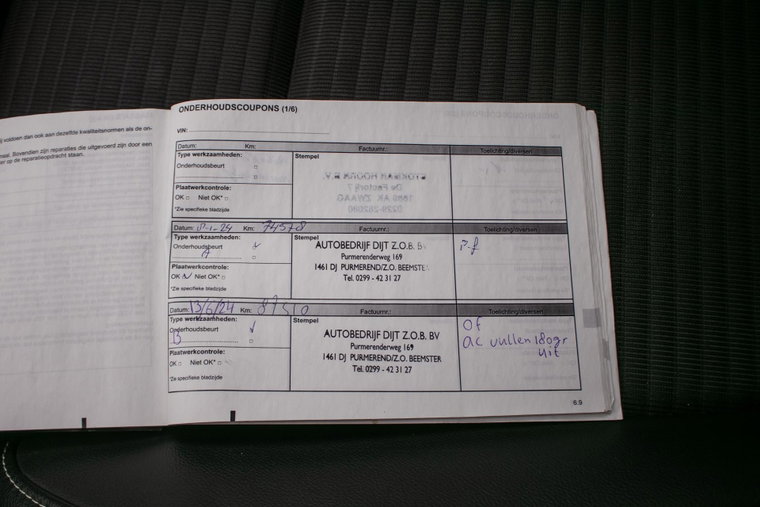 ij voldoen dan ook aan dezelfde kwaliteitsnormen als de on-
maal. Bovendien zijn reparaties die uitgevoerd zijn door een
er op de reparatieopdracht staan.
ONDERHOUDSCOUPONS (1/6)
VIN:
Datum: Km: Factuurnr.: Toelichting/diversen
Type werkzaamheden:
Stempel
Onderhoudsbeurt
Plaatwerkcontrole:
OK □ Niet OK* □
*Zie specifieke bladzijde
STOKMAN HOORN B.V.
De Factorij 7
1689 AK ZWAAG
0229-262080
Datum: Km: Factuurnr.: Toelichting/diversen
Type werkzaamheden:
Stempel
Onderhoudsbeurt
A
Plaatwerkcontrole:
OK Niet OK* □
*Zie specifieke bladzijde
AUTOBEDRIJF DIJT Z.O.B. BV
Purmerenderweg 169
1461 DJ PURMEREND/Z.O. BEEMSTER
Tel. 0299 - 42 31 27
Datum: 13/6/24 Km: Factuurnr.: Toelichting/diversen
Type werkzaamheden:
Stempel
Onderhoudsbeurt
B
Plaatwerkcontrole:
OK □ Niet OK* □
*Zie specifieke bladzijde
AUTOBEDRIJF DIJT Z.O.B. BV
Purmerenderweg 169
1461 DJ PURMEREND/Z.O. BEEMSTER
Tel. 0299 - 42 31 27
of
ac vullen 180gr
uit
6.9